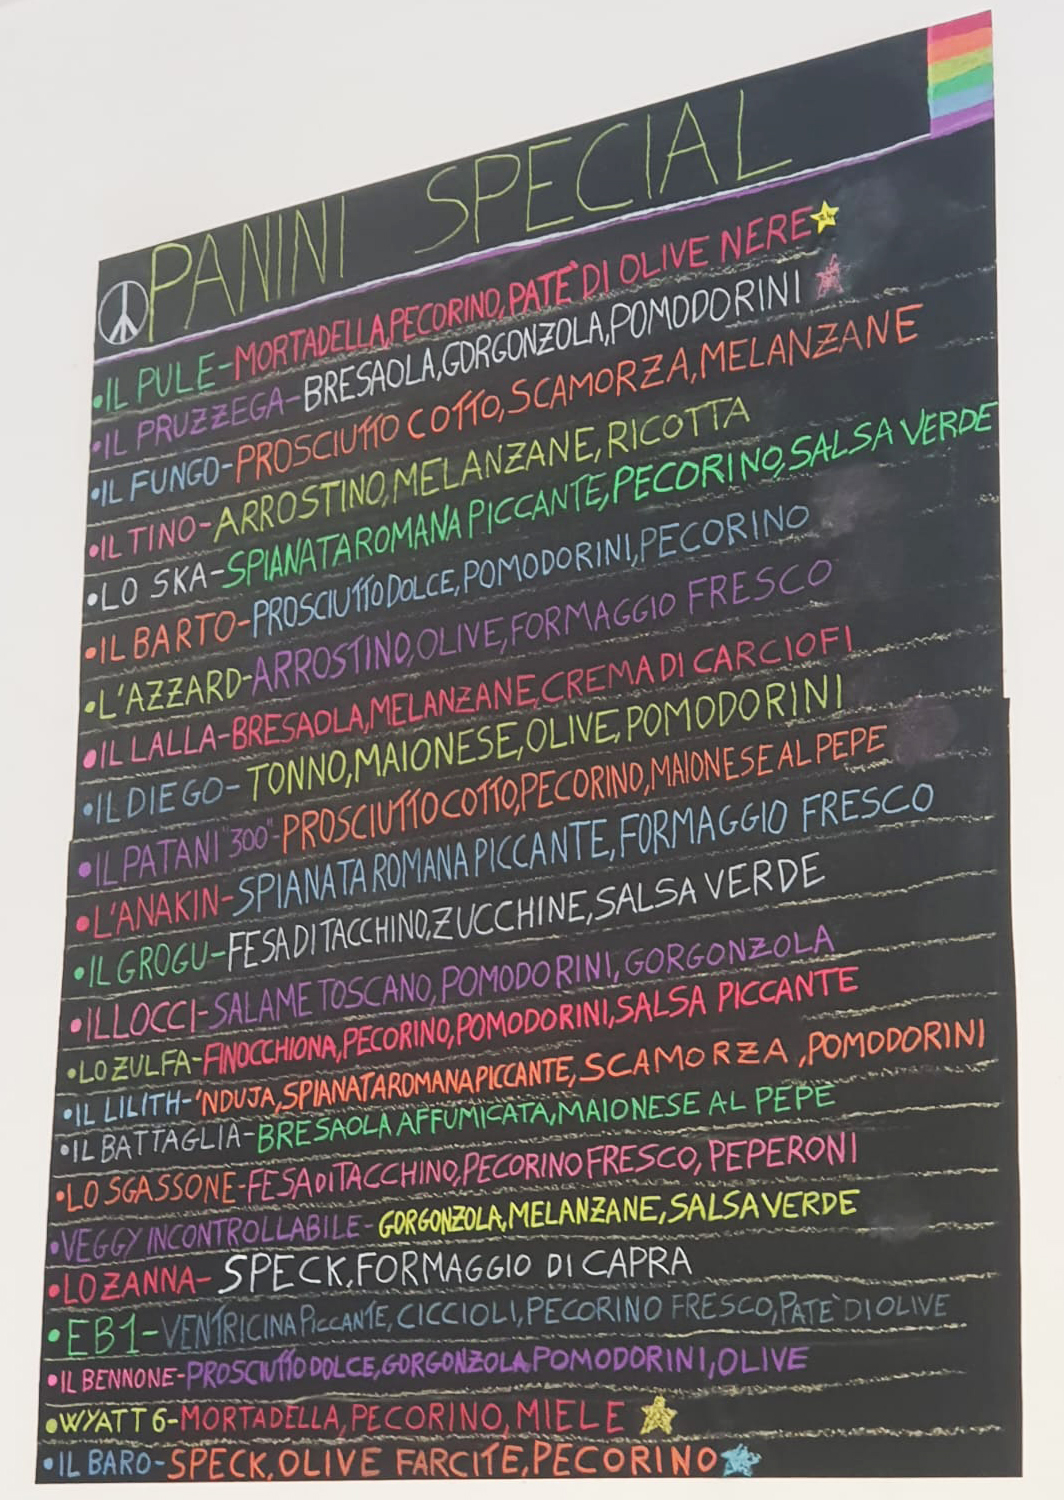 PANINI SPECIAL
•IL PULE-MORTADELLA,PECORINO,PATÈ DI OLIVE NERE
•IL PRUZZEGA-BRESAOLA,GORGONZOLA,POMODORINI
•IL FUNGO-PROSCIUTTO COTTO,SCAMORZA,MELANZANE
•IL TINO-ARROSTINO,MELANZANE,RICOTTA
•LO SKA-SPIANATA ROMANA PICCANTE,PECORINO,SALSA VERDE
•IL BARTO-PROSCIUTTO DOLCE,POMODORINI,PECORINO
•L'AZZARD-ARROSTINO,OLIVE,FORMAGGIO FRESCO
•IL LALLA-BRESAOLA,MELANZANE,CREMA DI CARCIOFI
•IL DIEGO-TONNO,MAIONESE,OLIVE,POMODORINI
•IL PATANI "300"-PROSCIUTTO COTTO,PECORINO,MAIONESE AL PEPE
•L'ANAKIN-SPIANATA ROMANA PICCANTE,FORMAGGIO FRESCO
•IL GROGU-FESA DI TACCHINO,ZUCCHINE,SALSA VERDE
•IL LOCCI-SALAME TOSCANO,POMODORINI,GORGONZOLA
•LO ZULFA-FINOCCHIONA,PECORINO,POMODORINI,SALSA PICCANTE
•IL LILITH-'NDUJA,SPIANATA ROMANA PICCANTE,SCAMORZA,POMODORINI
•IL BATTAGLIA-BRESAOLA AFFUMICATA,MAIONESE AL PEPE
•LO SGASSONE-FESA DI TACCHINO,PECORINO FRESCO,PEPERONI
•VEGGY INCONTROLLABILE-GORGONZOLA,MELANZANE,SALSA VERDE
•LO ZANNA-SPECK,FORMAGGIO DI CAPRA
•EB1-VENTRICINA PICCANTE,CICCIOLI,PECORINO FRESCO,PATE' DI OLIVE
•IL BENNONE-PROSCIUTTO DOLCE,GORGONZOLA,POMODORINI,OLIVE
•WYATT 6-MORTADELLA,PECORINO,MIELE
•IL BARO-SPECK,OLIVE FARCITE,PECORINO